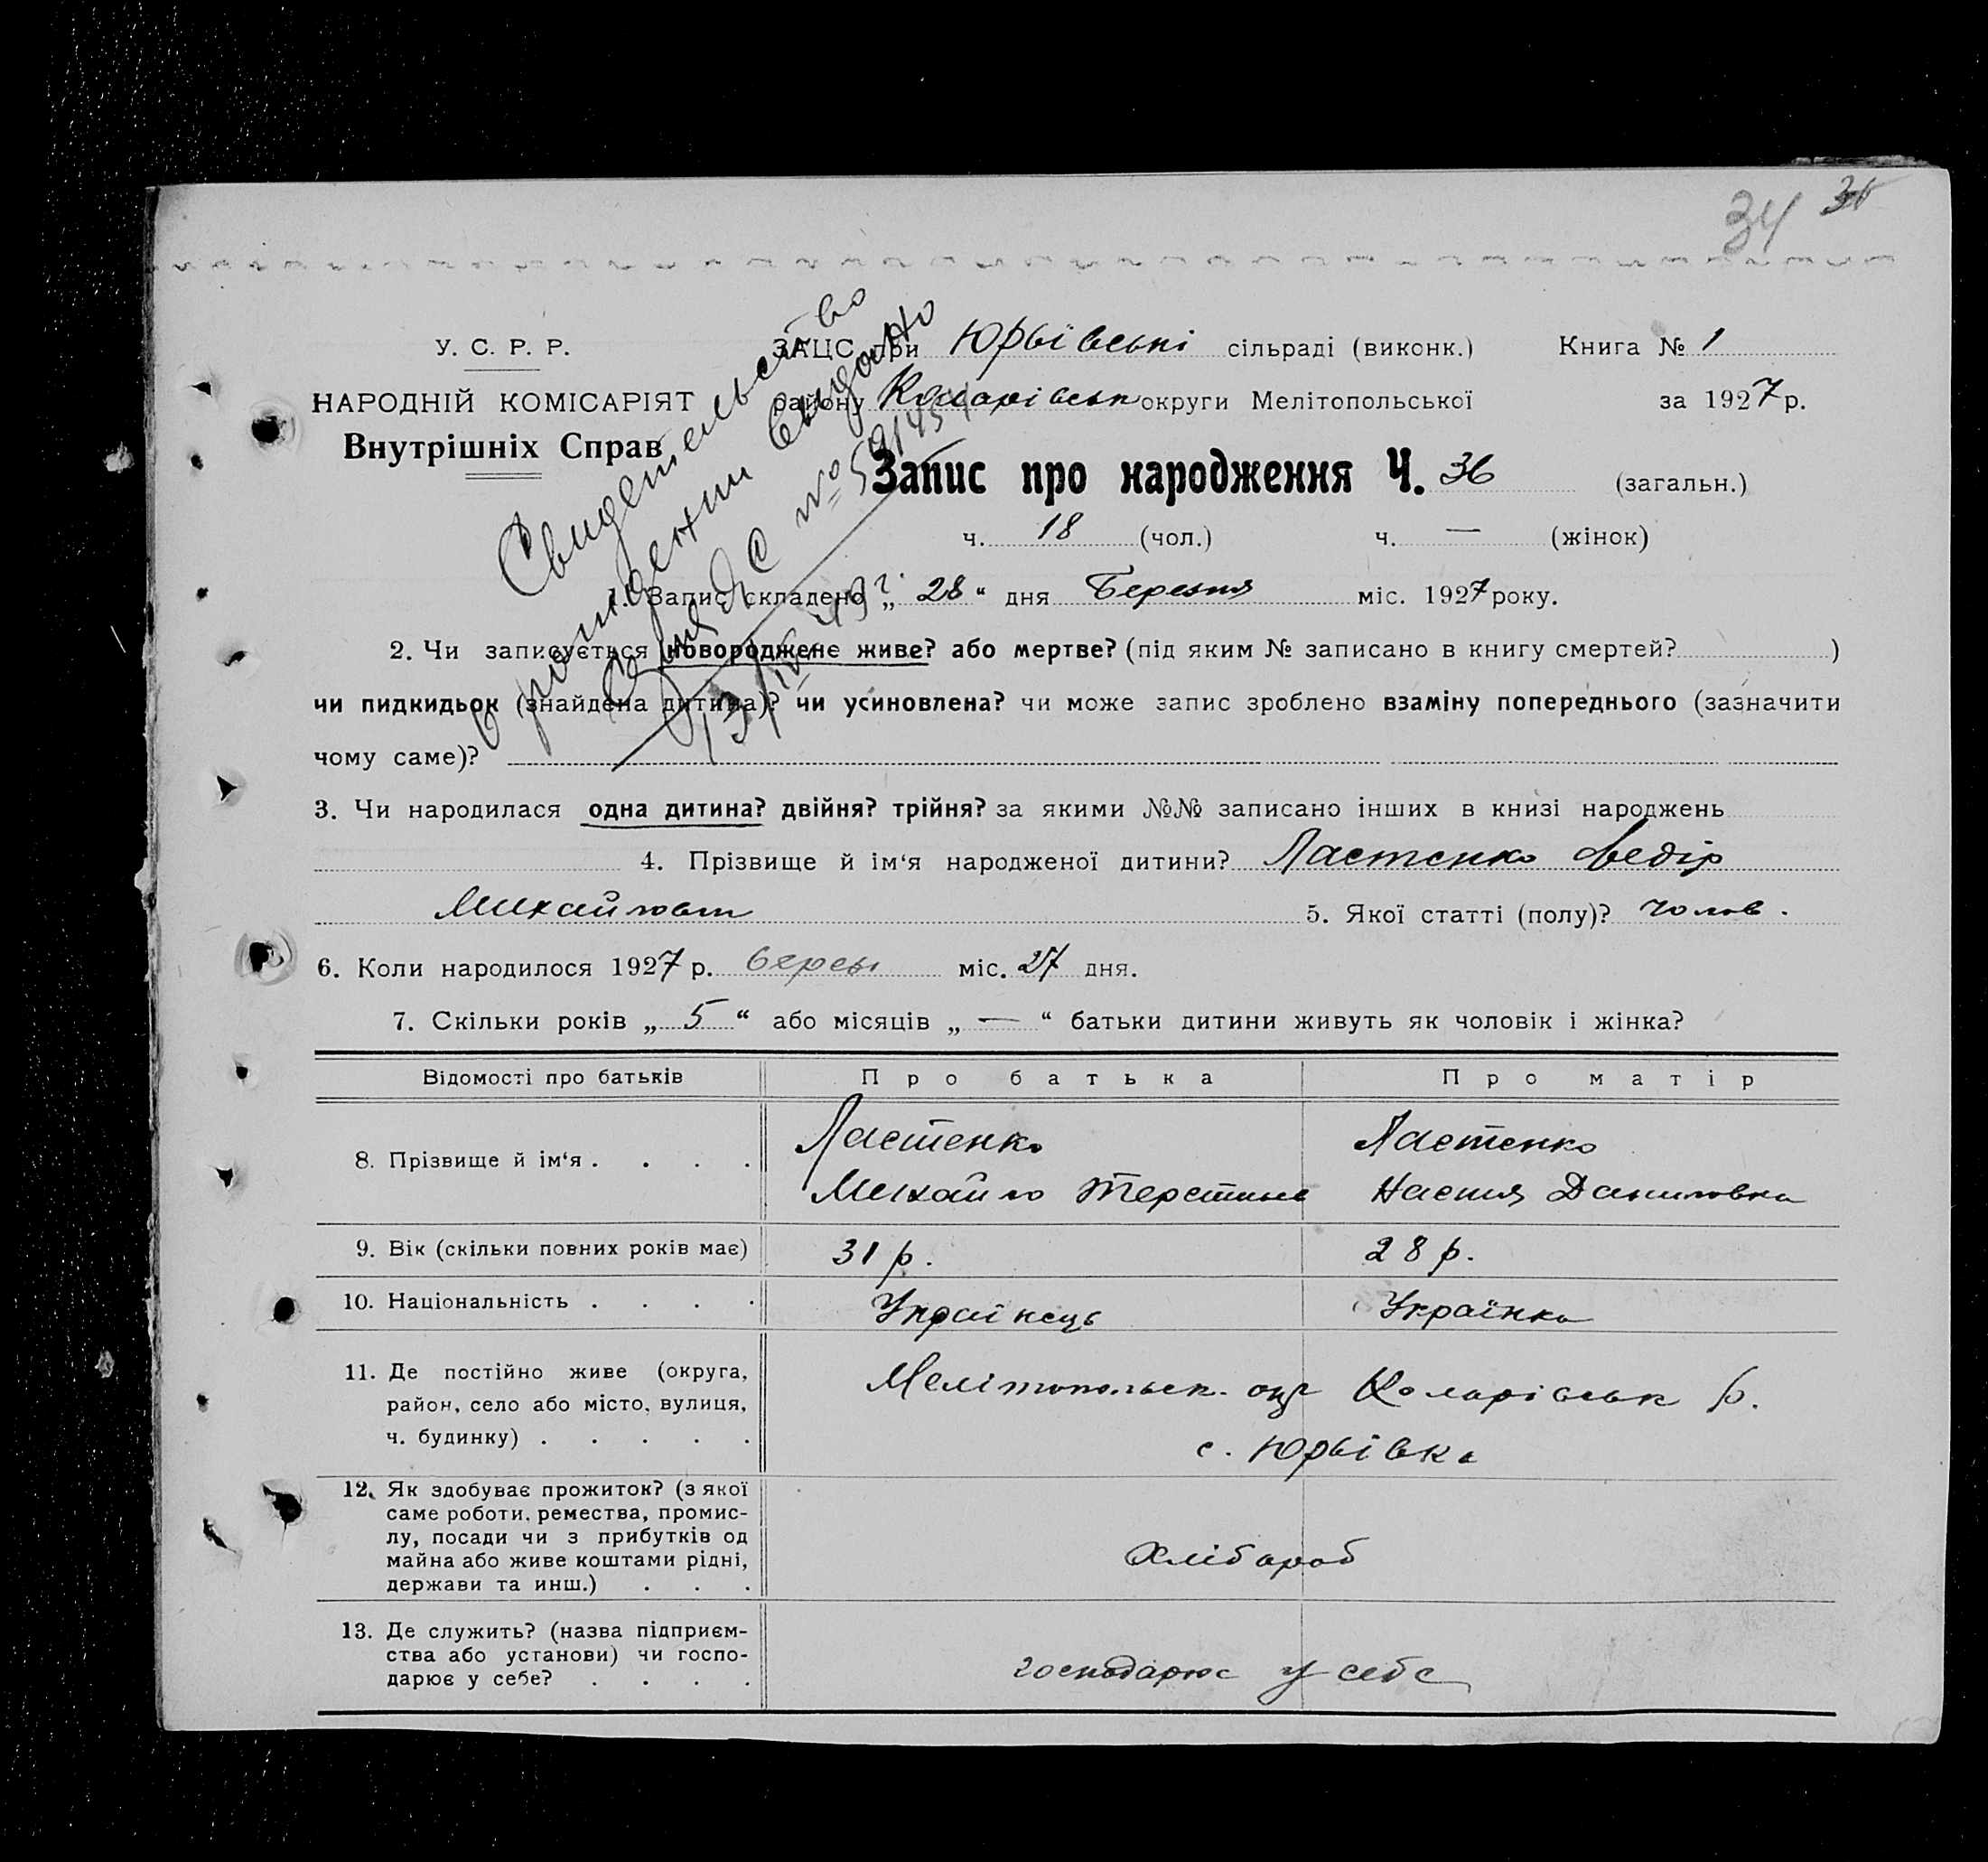 34 36
У. С. Р. Р.
НАРОДНІЙ КОМІСАРІЯТ
Внутрішніх Справ
ЗАЦС при Юрьівські сільраді (виконк.) Книга № 1
району Коларівськ округи Мелітопольської за 1927 р.
Свидетельство
о рождении выдано
№
Запис про народження Ч. 36 (загальн.)
ч. 18 (чол.) ч. — (жінок)
1. Запис складено „ 28 “ дня Березня міс. 1927 року.
2. Чи записується новороджене живе? або мертве? (під яким № записано в книгу смертей? )
чи пидкидьок (знайдена дитина)? чи усиновлена? чи може запис зроблено взаміну попереднього (зазначити
чому саме)?
3. Чи народилася одна дитина? двійня? трійня? за якими №№ записано інших в книзі народжень
4. Прізвище й ім‘я народженої дитини? Ластенко Федір
Михайлович 5. Якої статті (полу)? чолов.
6. Коли народилося 1927 р. березн міс. 27 дня.
7. Скільки років „ 5 “ або місяців „ — “ батьки дитини живуть як чоловік і жінка?
Відомості про батьків Про батька Про матір
8. Прізвище й ім‘я . . . . Ластенко Ластенко
Михайло Настя Даниловна
9. Вік (скільки повних років має) 31 р. 28 р.
10. Національність . . . . Украінець Українка
11. Де постійно живе (округа,
район, село або місто, вулиця,
ч. будинку) . . . . .
Мелітопольск. окр Коларівськ р.
с. Юрьівка
12. Як здобуває прожиток? (з якої
саме роботи, ремества, промис-
лу, посади чи з прибутків од
майна або живе коштами рідні,
держави та инш.) . . .
Хлібороб
13. Де служить? (назва підприєм-
ства або установи) чи госпо-
дарює у себе? . . . .
господарює у себе